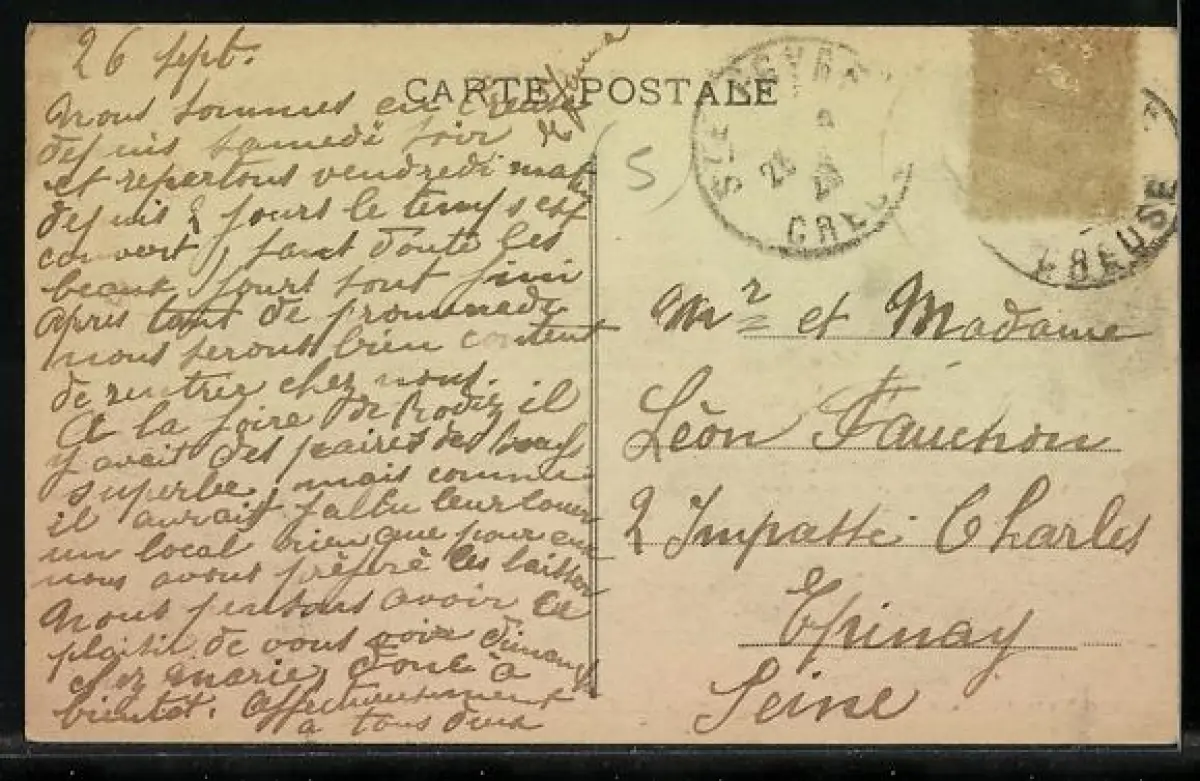 26 Sept.
CARTE POSTALE
Nous sommes en Creuse
depuis samedi soir
et repartons vendredi matin
depuis 2 jours le temps est
couvert, sans doute les
beaux jours sont fini
après tant de promenade
nous serons bien content
de rentrer chez nous.
A la foire de Rodez il
y avait des paires de boeufs
superbe, mais comme
il aurait fallu leur louer
un local rien que pour eux
nous avons préféré les laisser
Nous pensons avoir le
plaisir de vous voir dimanche
chez Marie, donc à
bientôt. Affectueusement
à tous deux
S
STE
CREUSE
CREUSE
Mr et Madame
Lèon Fauchon
2 Impasse Charles
Epinay
Seine